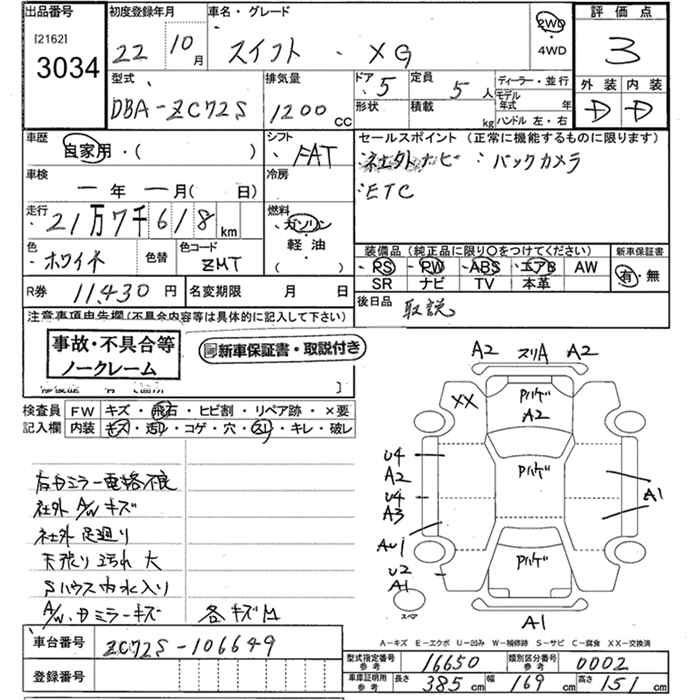 出品番号 初度登録年月 車名・グレード 評価点
[2162] 3034 22 10月 スイフト ・ XG 2WD ・ 4WD 3
型式 排気量 ドア 定員 ディーラー・並行 外装 内装
DBA-ZC72S 1200 CC 5 5人 モデル年式 年 D D
形状 積載 kg ハンドル 左・右
車歴 シフト セールスポイント (正常に機能するものに限ります)
自家用・( ) FAT 社外ナビ バックカメラ
車検 冷房 ETC
一年 一月( 日)
走行 燃料
21万7千618km ガソリン
色 色替 色コード 軽・油 装備品 (純正品に限り○をつけてください) 新車保証書
ホワイト ZMT ( ) PS PW ABS エアB AW 有・無
SR ナビ TV 本革
R券 11,430円 名変期限 月 日 後日品 取説
注意事項申告欄(不具合内容等は具体的に記入して下さい)
事故・不具合等
ノークレーム
新車保証書・取説付き
検査員 FW キズ・飛石・ヒビ割・リペア跡・×要
記入欄 内装 キズ・汚れ・コゲ・穴・スレ・キレ・破レ
右ミラー電格不良
社外A/Wキズ
社外足廻り
天張り汚れ大
Sハウス内水入り
A/W、ミラーキズ 各キズM
A2 スリA A2
XX Pハゲ
A2
U4 Pハゲ
A2
U4 A1
A3
AU1
U2 Pハゲ
A1
スペア A1
A-キズ E-エクボ U-凹み W-補修跡 S-サビ C-腐食 XX-交換済
車台番号 ZC72S-106649
登録番号
型式指定番号 参考 16650 類別区分番号 参考 0002
車庫証明用 参考 長さ 385cm 幅 169cm 高さ 151cm